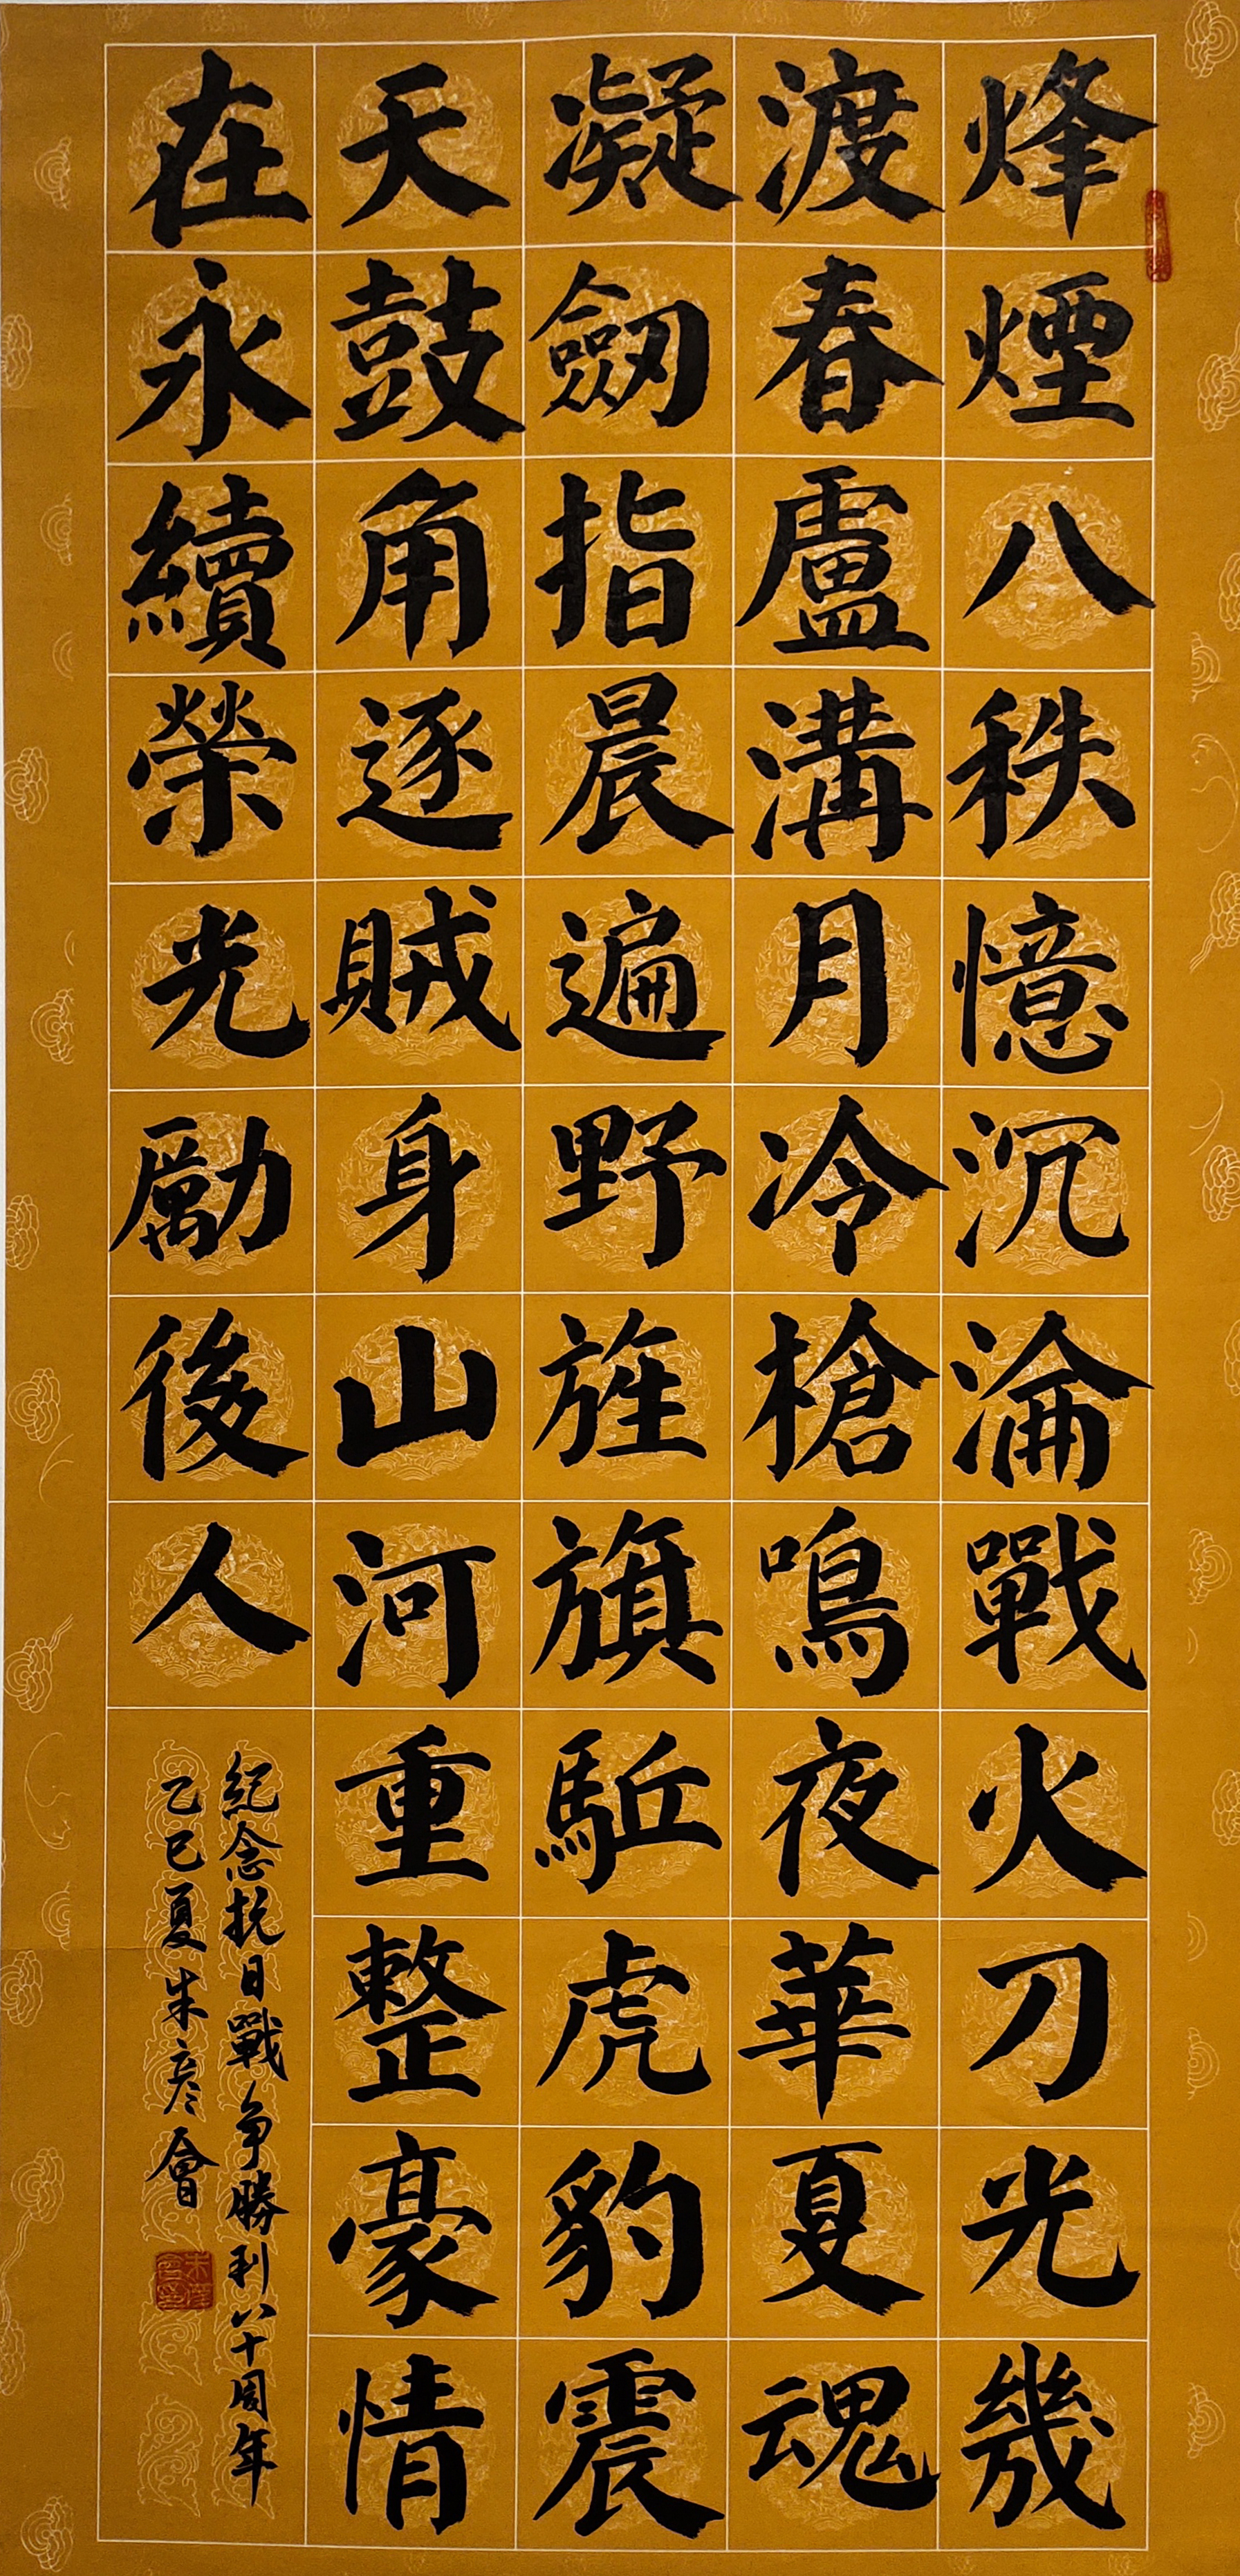 烽煙八秩憶沉淪戰火刀光幾
渡春盧溝月冷槍鳴夜華夏魂
凝劒指晨遍野旌旗駈虎豹震
天鼓角逐賊身山河重整豪情
在永續榮光勵後人
紀念抗日戰争勝利八十周年
乙巳夏朱彥會